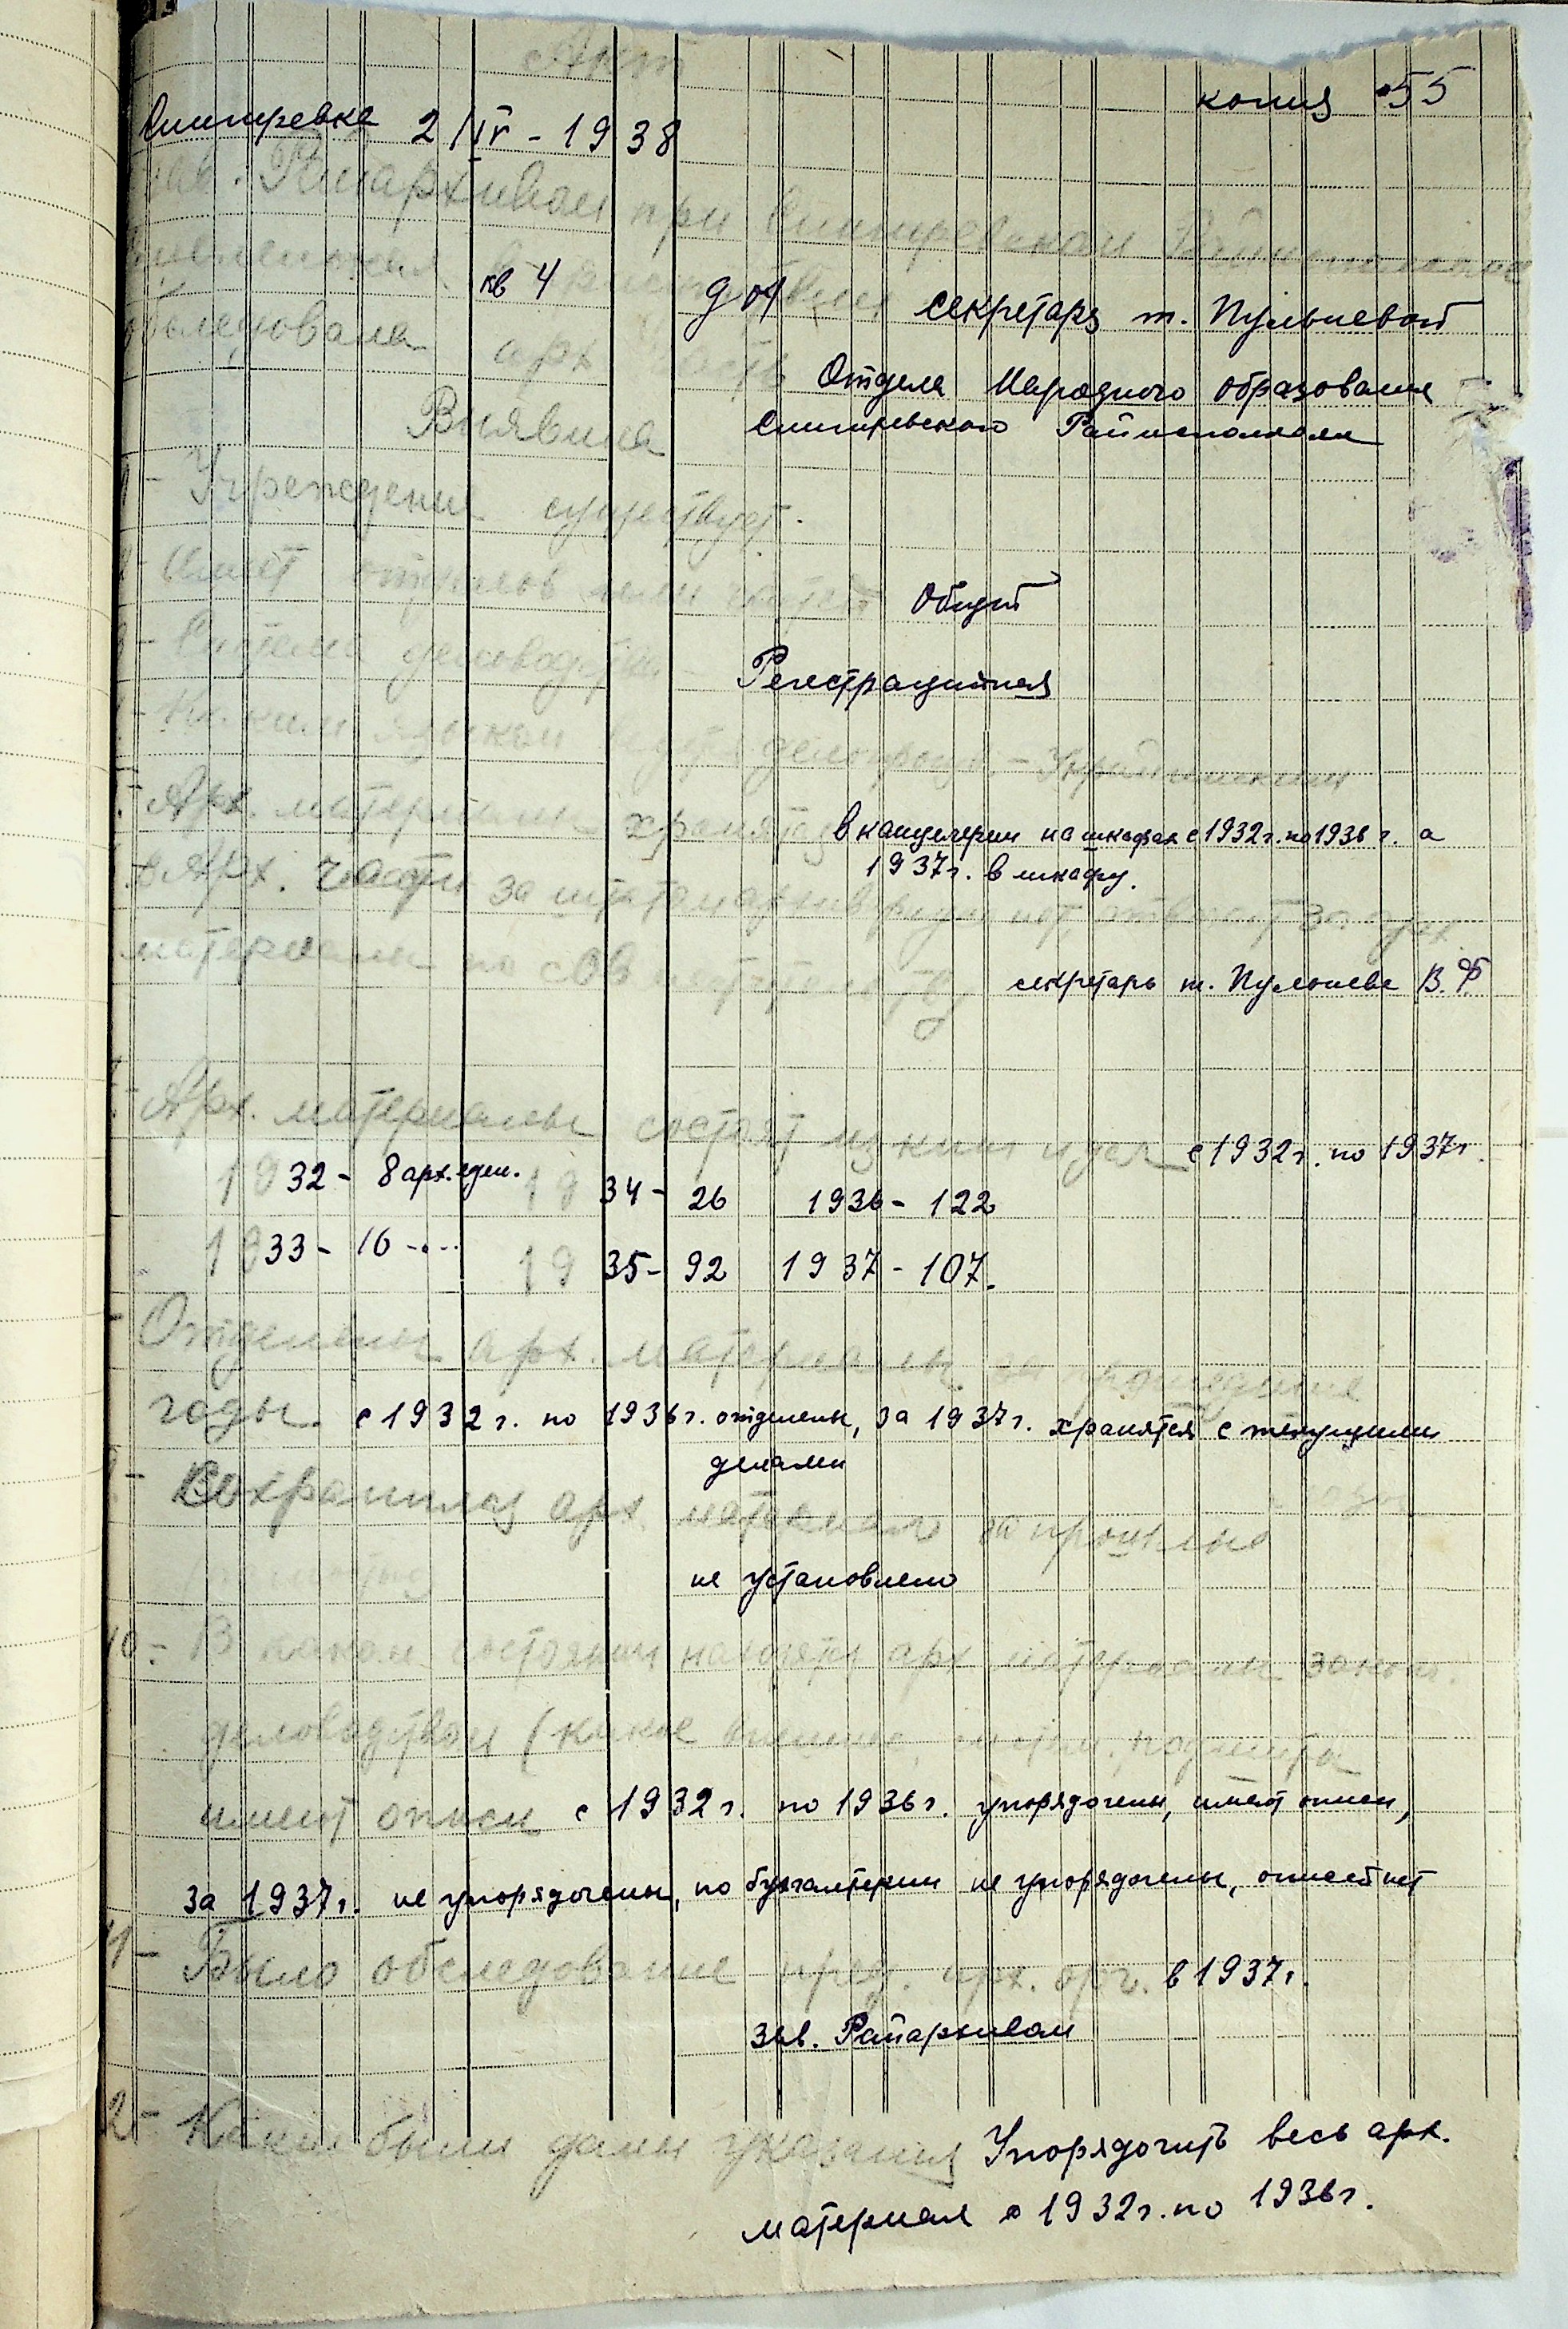 Акт
копия 55
Снигиревка 2/IV-1938
Зав. Райархивом при Снигиревском Райисполкоме
кв 4
секретаря т. Пульневой
обследовала арх. часть Отдела Народного образования
Снигиревского Райисполкома
Виявила
1- Учреждения существует.
2- Имеет отделов или частей Общий
3- Система деловодства - Регестрацийная
4- На каким языком ведется делопроизв. - Украинським
5- Арх. материалы хранятся в канцелерии на шкафах с 1932г. по 1936г. а
1937г. в шкафу.
6 Арх. части за штатом архивариуса нет, отвечает за арх
материалы по совместительству секретарь т. Пульнева В.Ф
7- Арх. материалы состоят из книг и дел с 1932г. по 1937г.
1932 - 8 арх. един. 1934 - 26 1936 - 122
1933 - 16 -..- 1935 - 92 1937 - 107.
Отделены арх. материалы за прошедшие
годы. с 1932г. по 1936г. отделены, за 1937г. хранятся с текущими
делами
9- Сохранился арх. материал за прошлые
не установлено
10- В каком состоянии находятся арх материалы закон.
деловодством (какое
имеют описи с 1932г. по 1936г. упорядочены, имеют описи,
за 1937г. не упорядочены, по бухгалтерии не упорядочены, описей нет
11- Было обследование пред. арх. орг. в 1937г.
Зав. Райархивом
12- Какие были даны указания Упорядочить весь арх.
материал с 1932г. по 1936г.